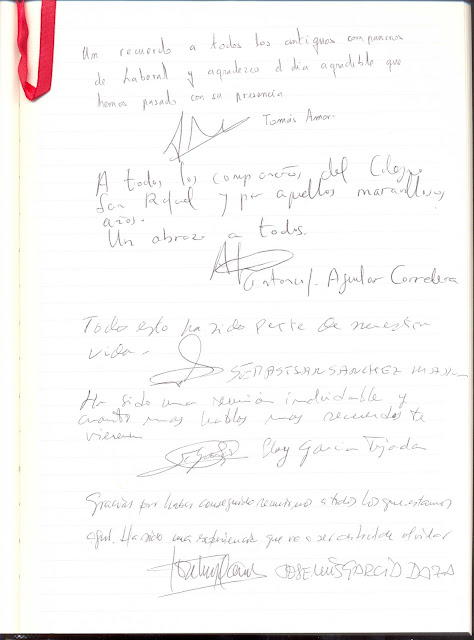 Un recuerdo a todos los antiguos compañeros
de Laboral y agradezco el dia agradible que
hemos pasado con su presencia
Tomás Amor.
A todos los compañeros del Colegio
San Rafael y por aquellos maravillosos
años.
Un abrazo a todos.
Antonio J. Aguilar Corredera
Todo esto ha sido parte de nuestra
vida.
SEBASTIAN SANCHEZ
Ha sido una reunión inolvidable y
cuanto mas hablas mas recuerdos te
vienen
Eloy Garcia Tejada
Gracias por haber conseguido reunirnos a todos los que estamos
aqui. Ha sido una experiencia que va a ser dificil de olvidar
JOSE LUIS GARCIA DAZA